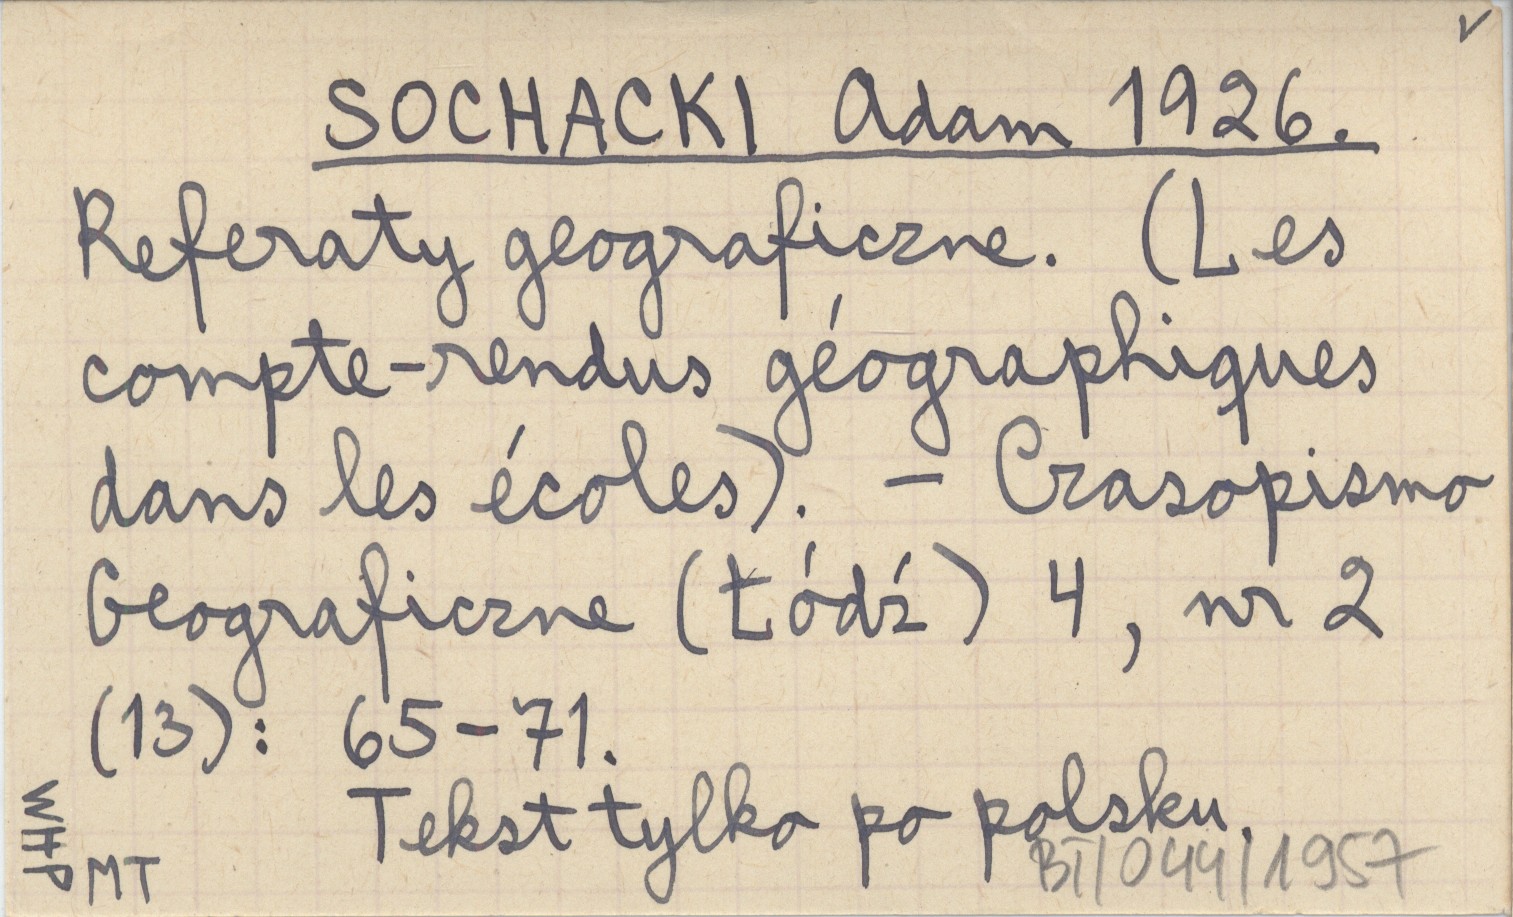 ✓
SOCHACKI Adam 1926.
Referaty geograficzne. (Les
compte-rendus géographiques
dans les écoles). – Czasopismo
Geograficzne (Łódź) 4, nr 2
(13): 65–71.
Tekst tylko po polsku.
WHP
MT
BI/044/1957